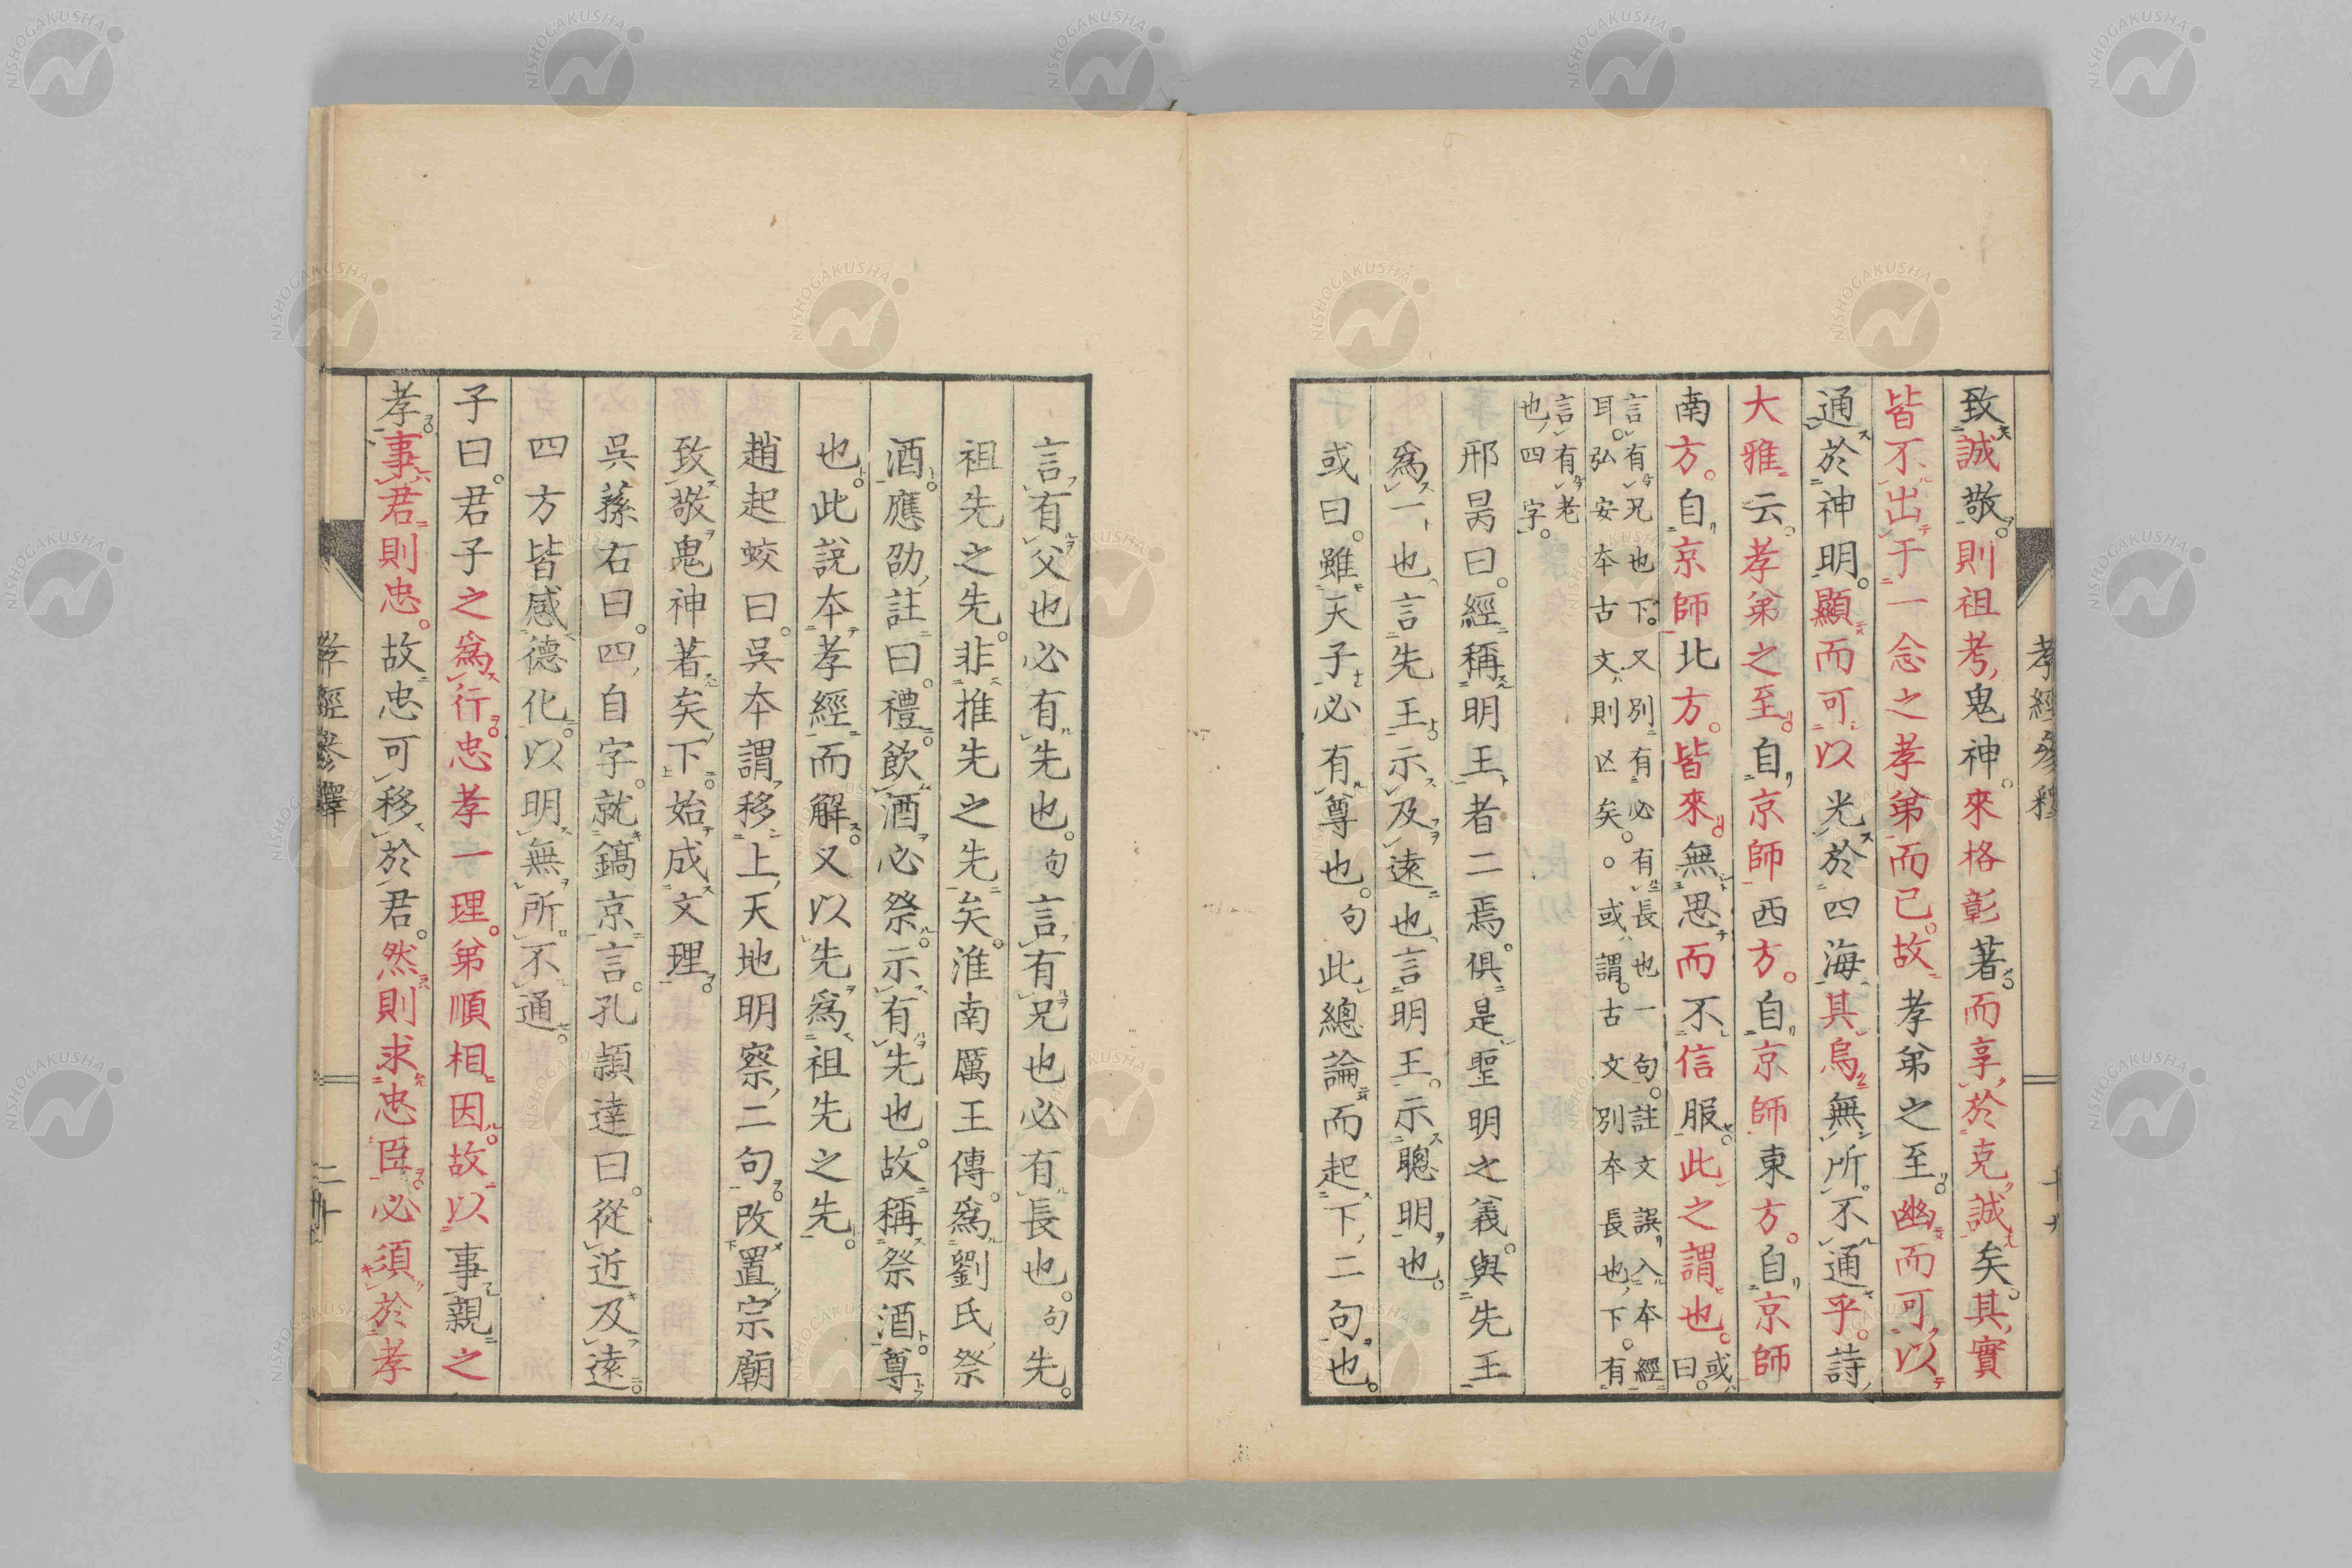 致誠敬。則祖考,鬼神。來格彰著。而享,於克,誠矣。其,實
皆不出于一念之孝弟而已。故孝弟之至。幽而可,以
通於神明。顯而可以光於四海其烏無所不通乎。詩,
大雅云。孝弟之至。自京師西方。自京師東方。自京師
南方。自京師北方。皆來。無思而不信服。此之謂也。或曰。
言有兄也下。又別有必有長也一句。註文誤入本經
耳。弘安本古文則凶矣。○或謂。古文別本長也,下。有
言有老
也,四字。
邢昺曰。經稱明王,者二焉。俱是聖明之義。與先王
爲一,也。言先王。示及遠也。言明王。示聰明也。
或曰。雖天子必有尊也。句此總論而起下,二句也。
孝經參釋
十九
言有父也必有先也。句言有兄也必有長也。句先。
祖先之先。非推先之先矣。淮南厲王傳。爲劉氏,祭
酒。應劭,註曰。禮。飲酒必祭。示有先也。故稱祭酒。尊
也。此説本孝經而解。又以先爲祖先之先。
趙起蛟曰。吳本謂移上,天地明察,二句。改置宗廟
致敬鬼神著矣,下。始成文理。
吳蓀右曰。四,自字。就鎬京言。孔頴達曰。從近及遠。
四方皆感德化。以明無所不通。
子曰。君子之爲行。忠孝一理。弟順相因。故以事親之
孝。事君則忠。故忠可移於君。然則求忠臣。必須於孝
孝經參釋
二十
NISHOGAKUSHA